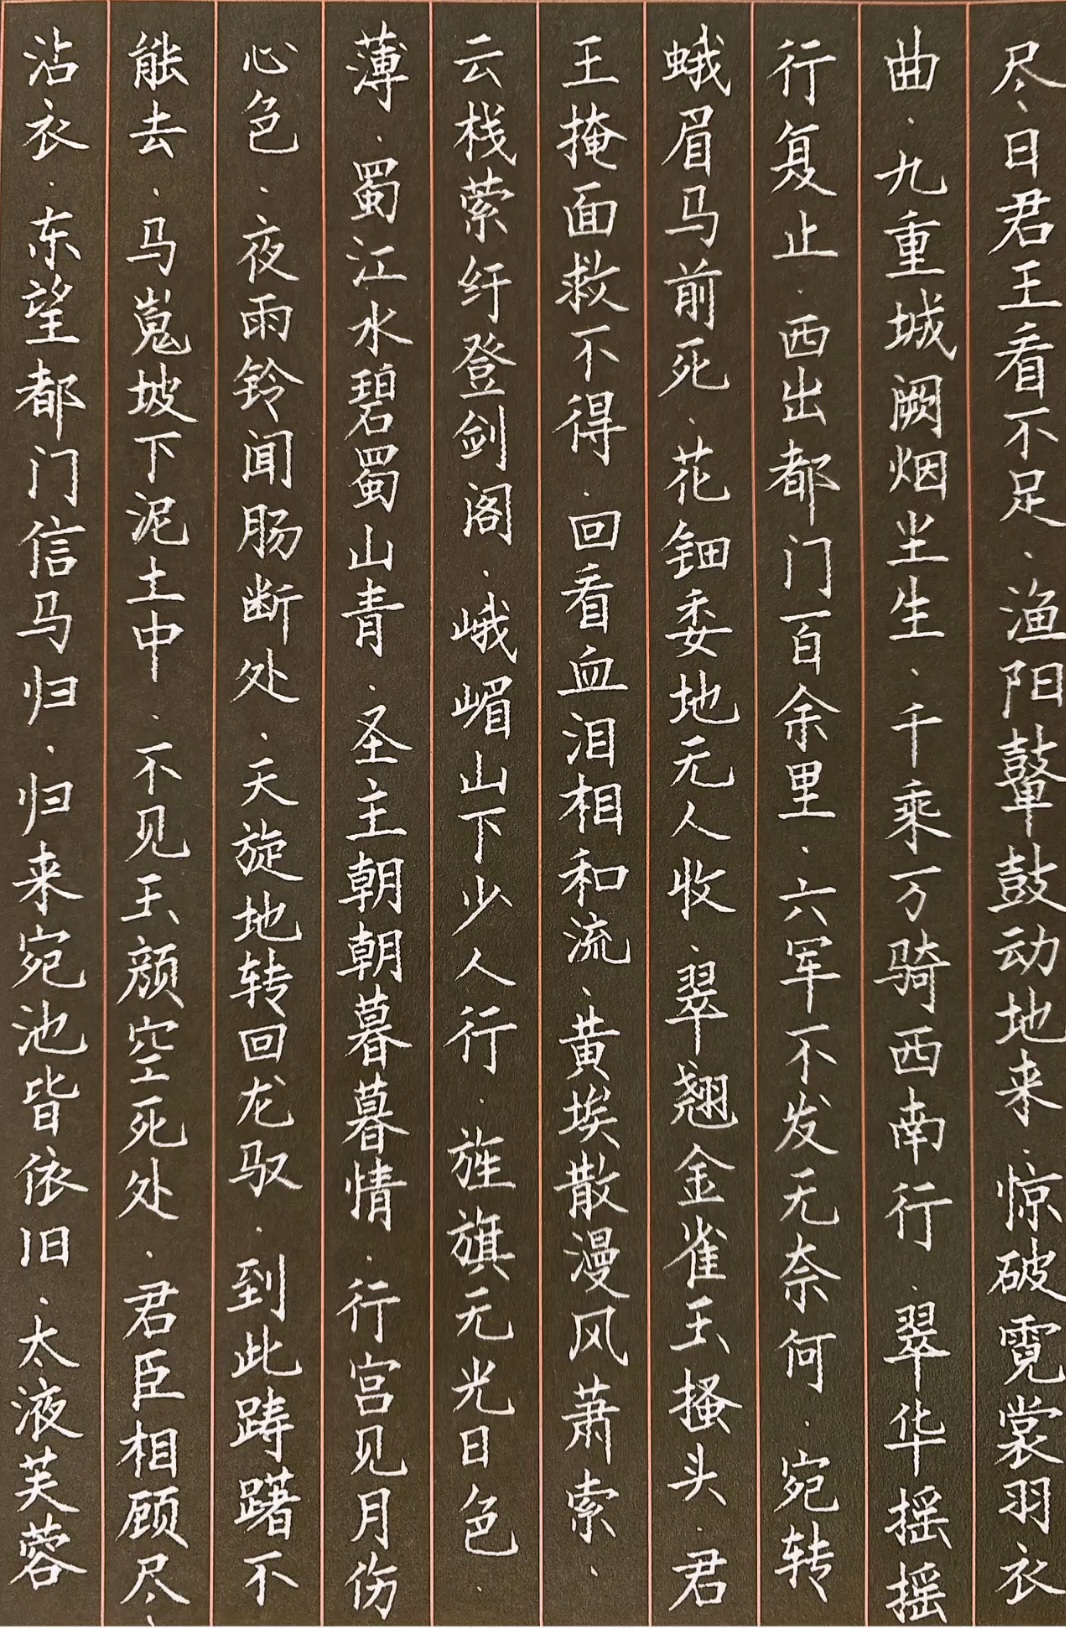 尽日君王看不足·渔阳鼙鼓动地来·惊破霓裳羽衣
曲·九重城阙烟尘生·千乘万骑西南行·翠华摇摇
行复止·西出都门百余里·六军不发无奈何·宛转
蛾眉马前死·花钿委地无人收·翠翘金雀玉搔头·君
王掩面救不得·回看血泪相和流·黄埃散漫风萧索·
云栈萦纡登剑阁·峨嵋山下少人行·旌旗无光日色·
薄·蜀江水碧蜀山青·圣主朝朝暮暮情·行宫见月伤
心色·夜雨铃闻肠断处·天旋地转回龙驭·到此踌躇不
能去·马嵬坡下泥土中·不见玉颜空死处·君臣相顾尽
沾衣·东望都门信马归·归来宛池皆依旧·太液芙蓉